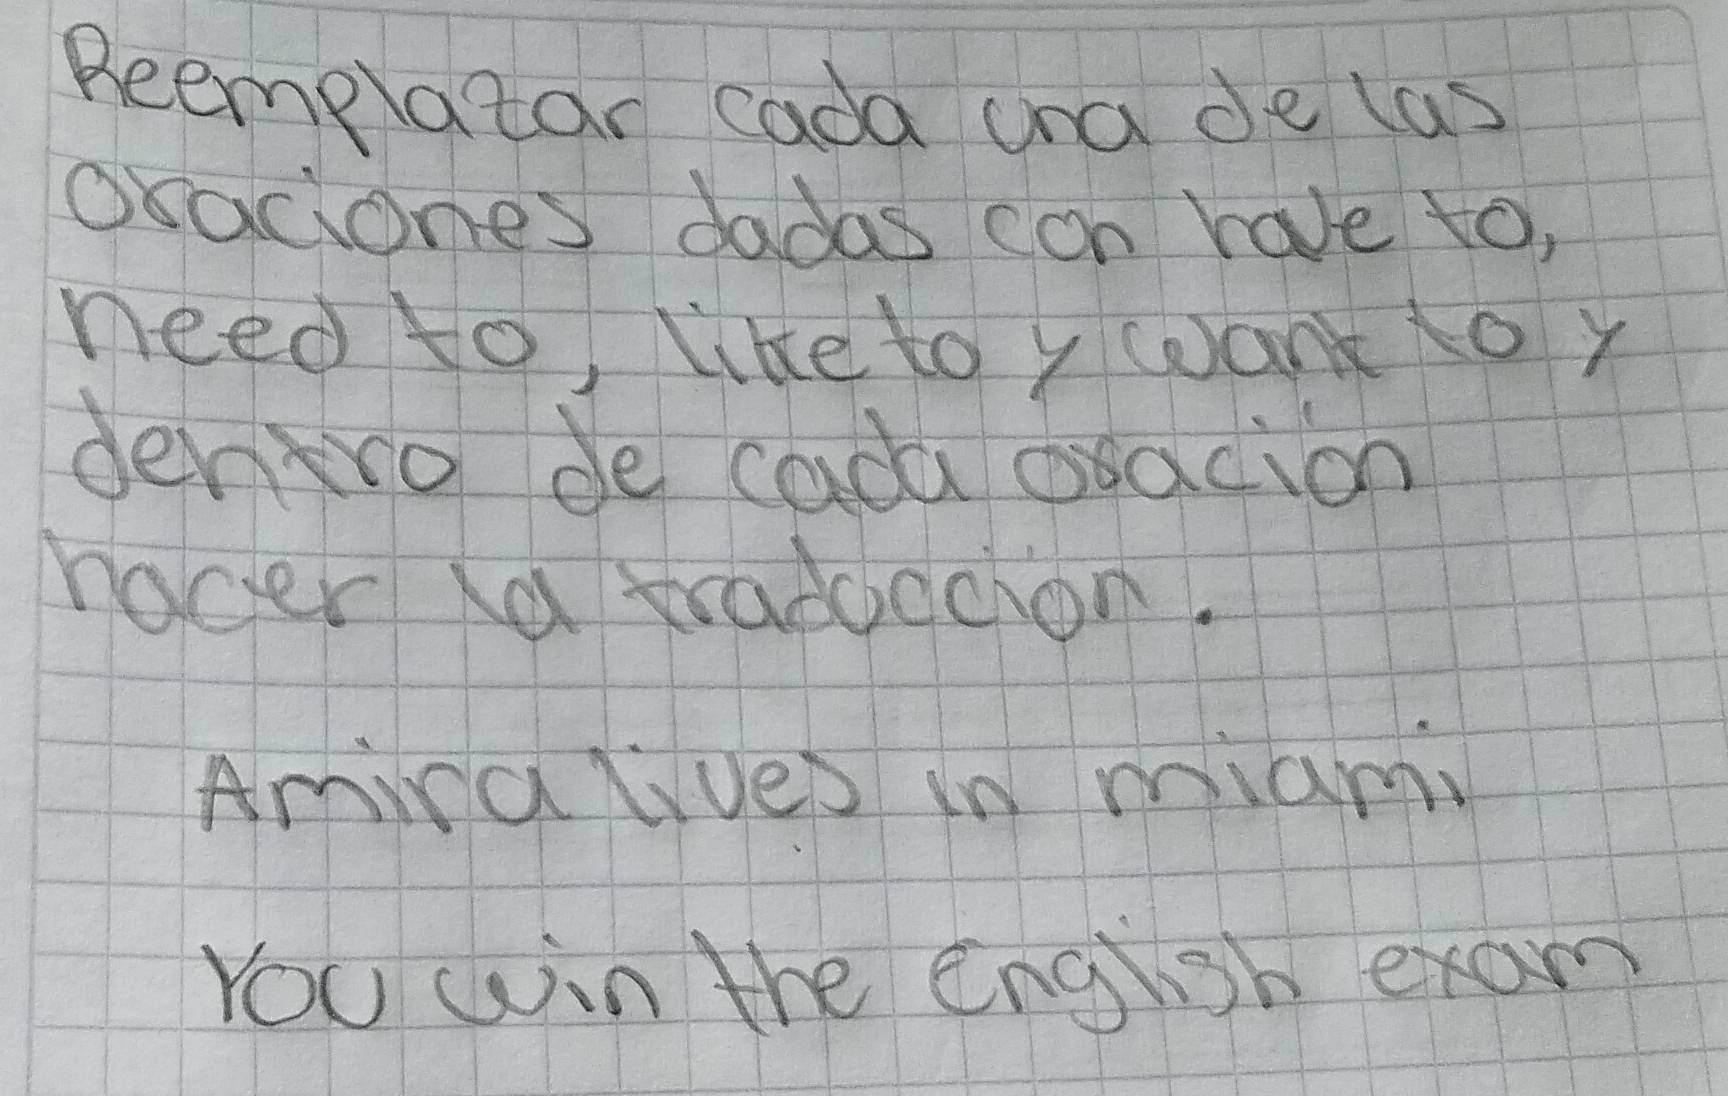 Reemplazar cada una de las
oraciones dadas con have to,
need to, like to y want to y
dentro de cada oración
hacer la traducción.
Amira lives in miami
You win the English exam